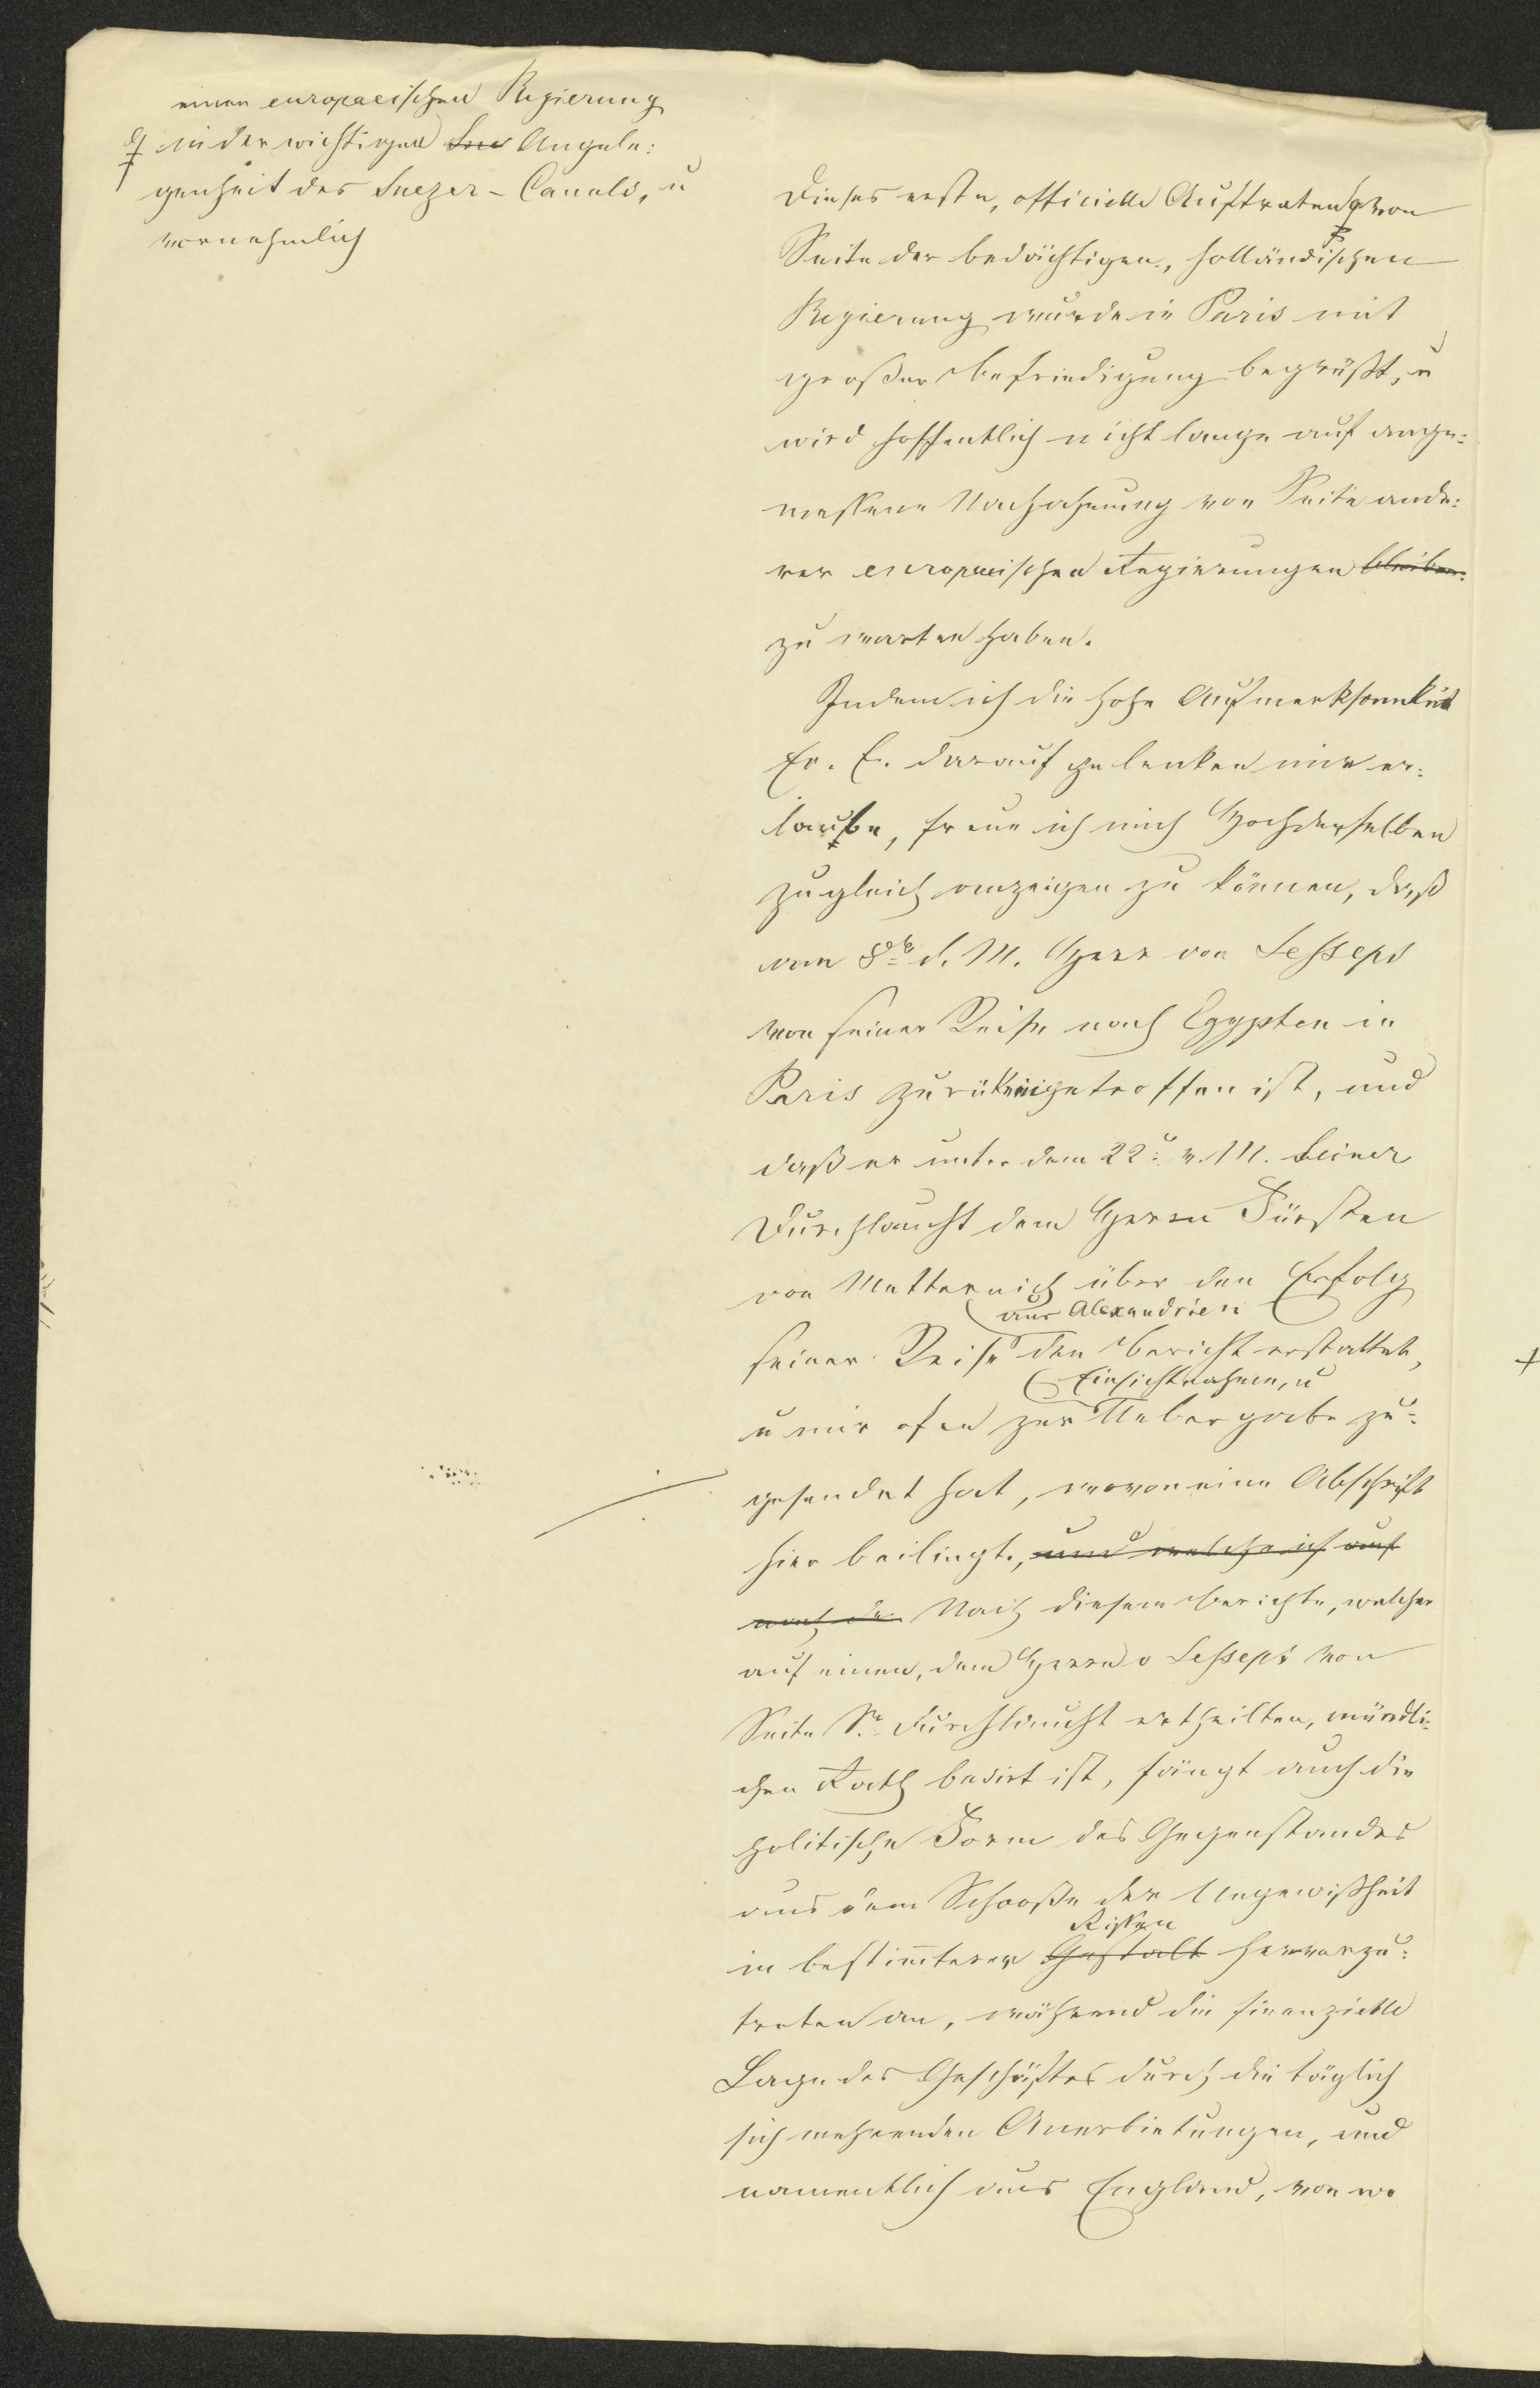 einer europaeischen Regierung
in der wichtigen Sue Angele:
genheit des Suezer-Canals, u
vornehmlich
Dieses erste, officielle Auftreten von
Seite der bedächtigen, holländischen
Regierung wurde in Paris mit
großer Befriedigung begrüßt, u
wird hoffentlich nicht lange auf ange:
messene Nachahmung von Seite ande:
rer europaeischen Regierungen bleiben
zu warten haben.
Indem ich die hohe Aufmerksamkeit
Er. E. darauf zu lenken mir er:
laube, freue ich mich Hochderselben
zugleich anzeigen zu können, daß
am 8t d. M. Herr von Lesseps
von seiner Reise nach Egypten in
Paris zurükeingetroffen ist, und
daß er unter dem 22t v. M. Seiner
Durchlaucht dem Herrn Fürsten
von Metternich über den Erfolg
aus Alexandrien
seiner Reise den Bericht erstattet,
Einsichtnahme, u
u mir ofen zur Uebergabe zu:
gesendet hat, wovon eine Abschrift
hier beiliegt, und welche ich auf
nach de Nach diesem Berichte, welcher
auf einen, dem Herrn v Lesseps von
Seite Sr Durchlaucht ertheilten, mündli:
chen Rath basirt ist, fängt auch die
politische Form des Gegenstandes
aus dem Schooße der Ungewißheit
Rissen
in bestimterer Gestalt hervorzu:
treten an, während die finanzielle
Lage des Geschäftes durch die täglich
sich mehrenden Anerbietungen, und
namentlich aus England, von wo